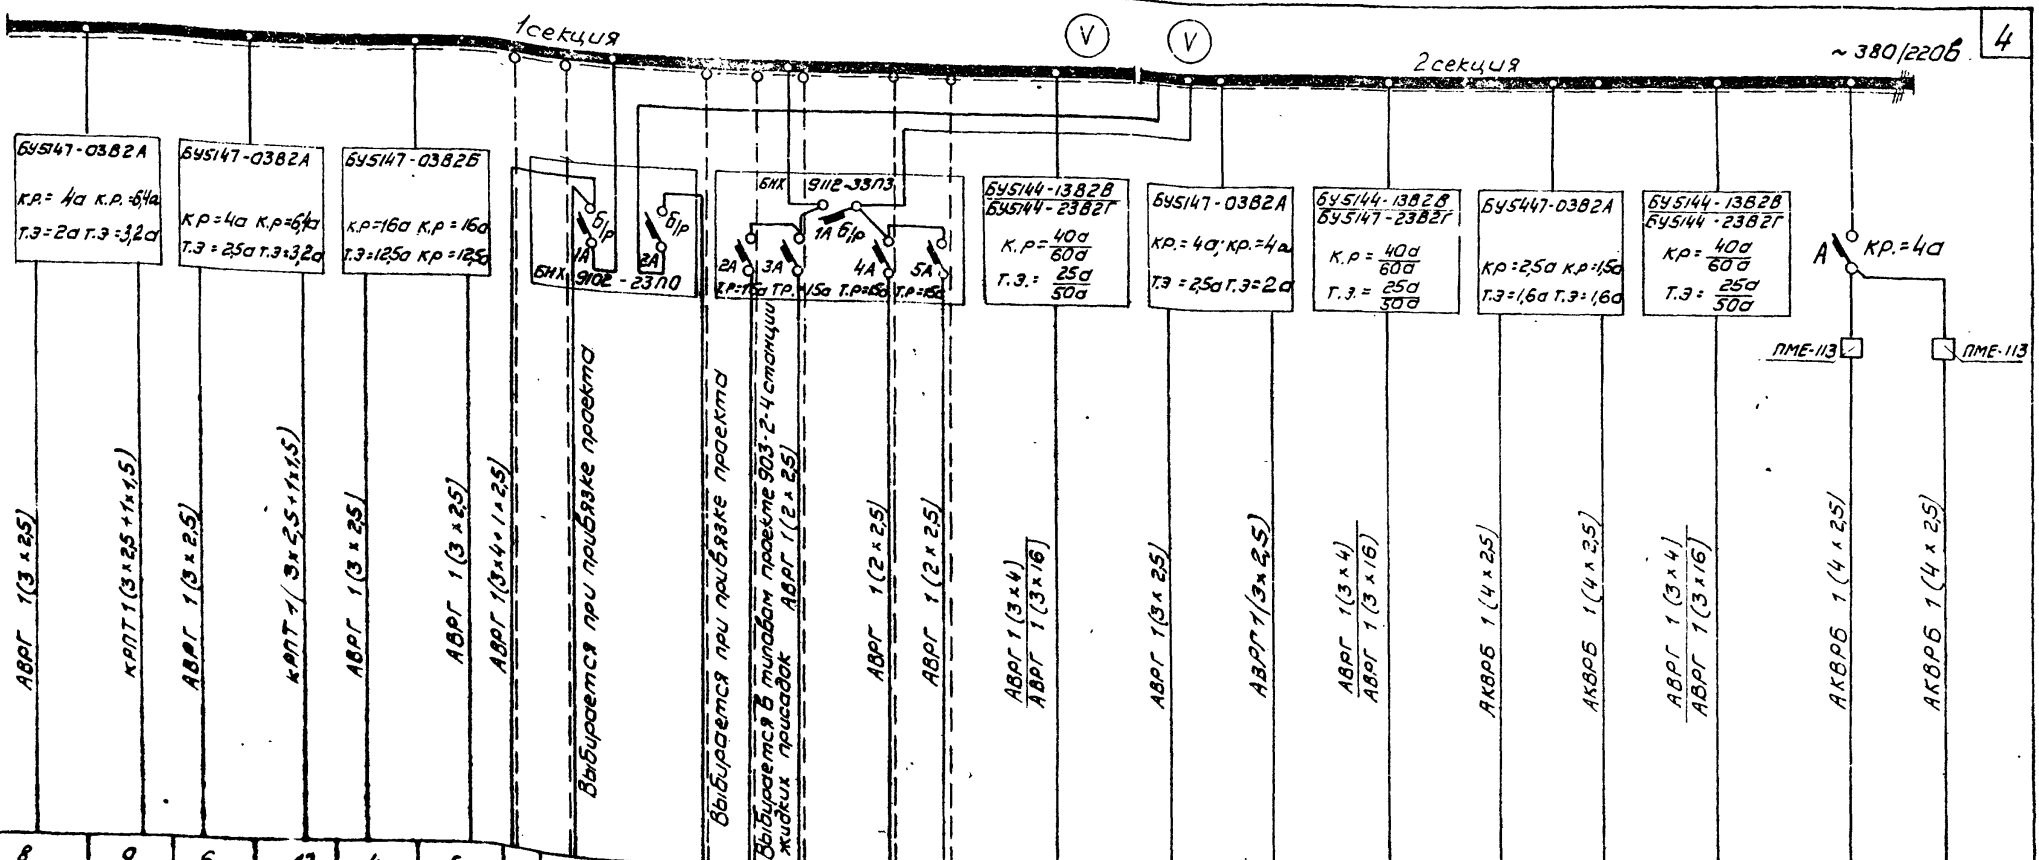 1 секция
V
V
2 секция
~ 380/220в
4
БУ5147-03В2А
к.р.= 4а к.р.=6,4а
Т.Э=2а Т.Э=3,2а
БУ5147-03В2А
к.р=4а к.р=6,4а
Т.Э=2,5а Т.Э=3,2а
БУ5147-03В2Б
к.р=16а к.р=16а
Т.Э=12,5а к.р=12,5а
б/р
1А
б/р
2А
БНХ 9102-23П0
БНХ 9112-33П3
1А б/р
2А
3А
4А
5А
Т.Р=15а Т.Р.=15а Т.Р=15а Т.Р=15а
БУ5144-13В2В
БУ5144-23В2Г
к.р=40а/60а
Т.Э.=25а/50а
БУ5147-03В2А
к.р.=4а; к.р.=4а
Т.Э=2,5а Т.Э=2а
БУ5144-13В2В
БУ5147-23В2Г
к.р=40а/60а
Т.Э.=25а/50а
БУ5447-03В2А
к.р=2,5а к.р=1,5а
Т.Э=1,6а Т.Э=1,6а
БУ5144-13В2В
БУ5144-23В2Г
к.р=40а/60а
Т.Э.=25а/50а
А
к.р.=4а
ПМЕ-113
ПМЕ-113
АВРГ 1(3×2,5)
КРПТ 1(3×2,5+1×1,5)
АВРГ 1(3×2,5)
КРПТ 1(3×2,5+1×1,5)
АВРГ 1(3×2,5)
АВРГ 1(3×2,5)
АВРГ 1(3×4+1×2,5)
Выбирается при привязке проекта
Выбирается при привязке проекта
Выбирается в типовом проекте 903-2-4 станции
жидких присадок АВРГ 1(2×2,5)
АВРГ 1(2×2,5)
АВРГ 1(2×2,5)
АВРГ 1(3×4)
АВРГ 1(3×16)
АВРГ 1(3×2,5)
АВРГ 1(3×2,5)
АВРГ 1(3×4)
АВРГ 1(3×16)
АКВРБ 1(4×2,5)
АКВРБ 1(4×2,5)
АВРГ 1(3×4)
АВРГ 1(3×16)
АКВРБ 1(4×2,5)
АКВРБ 1(4×2,5)